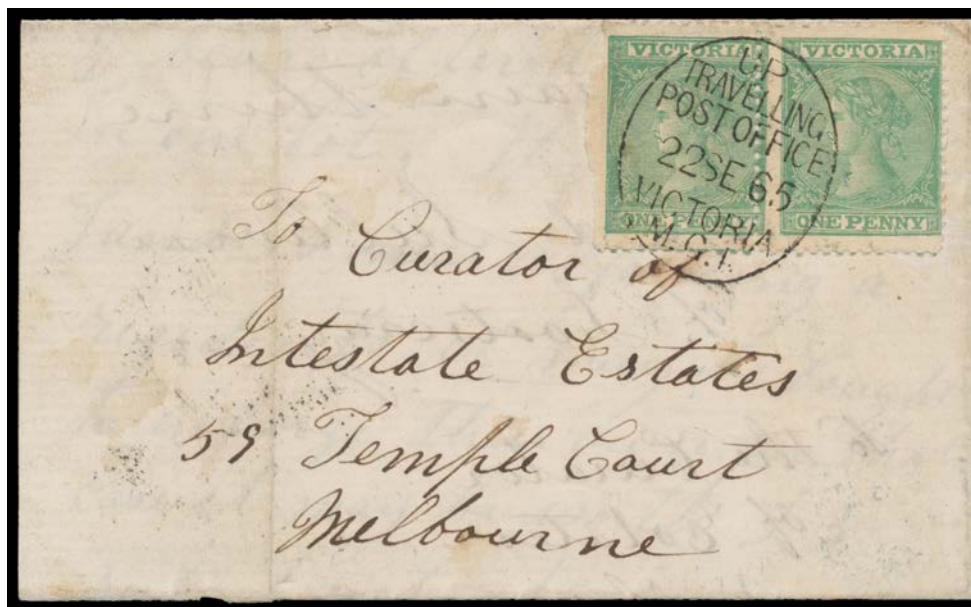 VICTORIA VICTORIA
UP
TRAVELLING
POST OFFICE
22 SE 65
VICTORIA
M.G.1.
ONE PENNY ONE PENNY
To
Curator of
Intestate Estates
59 Temple Court
Melbourne